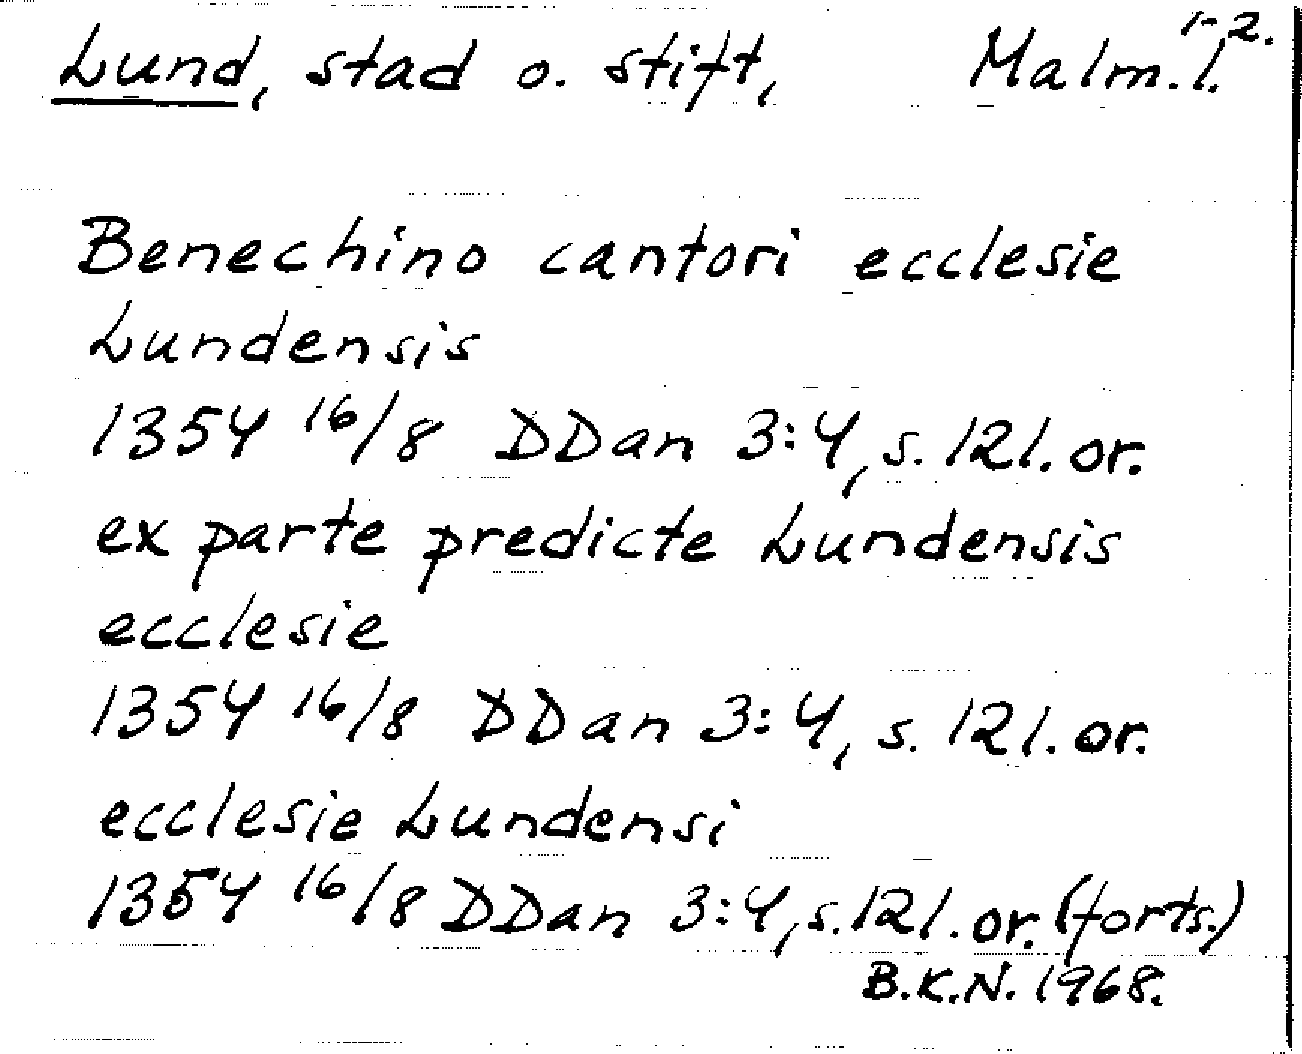 Lund, stad o. stift, Malm. l. 1-2.
Benechino cantori ecclesie
Lundensis
1354 16/8 DDan 3:4, s. 121. or.
ex parte predicte Lundensis
ecclesie
1354 16/8 DDan 3:4, s. 121. or.
ecclesie Lundensi
1354 16/8 DDan 3:4, s. 121. or. (forts.)
B.K.N. 1968.